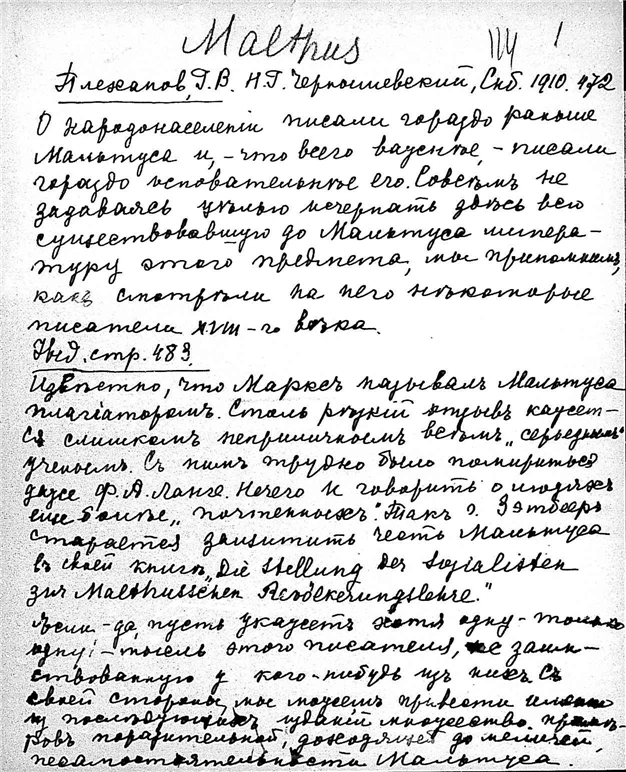 Malthus
1
Плеханов, Г.В. Н.Г. Чернышевский, Спб. 1910. 472
О народонаселенiи писали гораздо раньше
Мальтуса и, - что всего важнѣе, - писали
гораздо основательнѣе его. Совсѣмъ не
задаваясь цѣлью исчерпать здѣсь всю
существовавшую до Мальтуса литера-
туру этого предмета, мы припомнимъ,
какъ смотрѣли на него нѣкоторые
писатели XVIII-го вѣка.
Ibid. стр. 483.
Извѣстно, что Марксъ называлъ Мальтуса
плагiаторомъ. Столь рѣзкiй отзывъ кажет-
ся слишкомъ неприличнымъ всѣмъ „серьезнымъ"
ученымъ. Съ нимъ трудно было помириться
даже Ф.А. Ланге. Нечего и говорить о людяхъ
еще болѣе „почтенныхъ". Такъ г. Зэтберъ
старается защитить честь Мальтуса
въ своей книгѣ „Die Stellung der Sozialisten
zur Malthusschen Bevölkerungslehre."
Если - да, пусть укажетъ хотя одну - только
одну! - мысль этого писателя, не заим-
ствованную у кого-нибудь изъ нихъ. Съ
своей стороны, мы можемъ привести именно
изъ послѣдующихъ изданiй множество примѣ-
ровъ поразительной, доходящей до мелочей,
несамостоятельности Мальтуса.